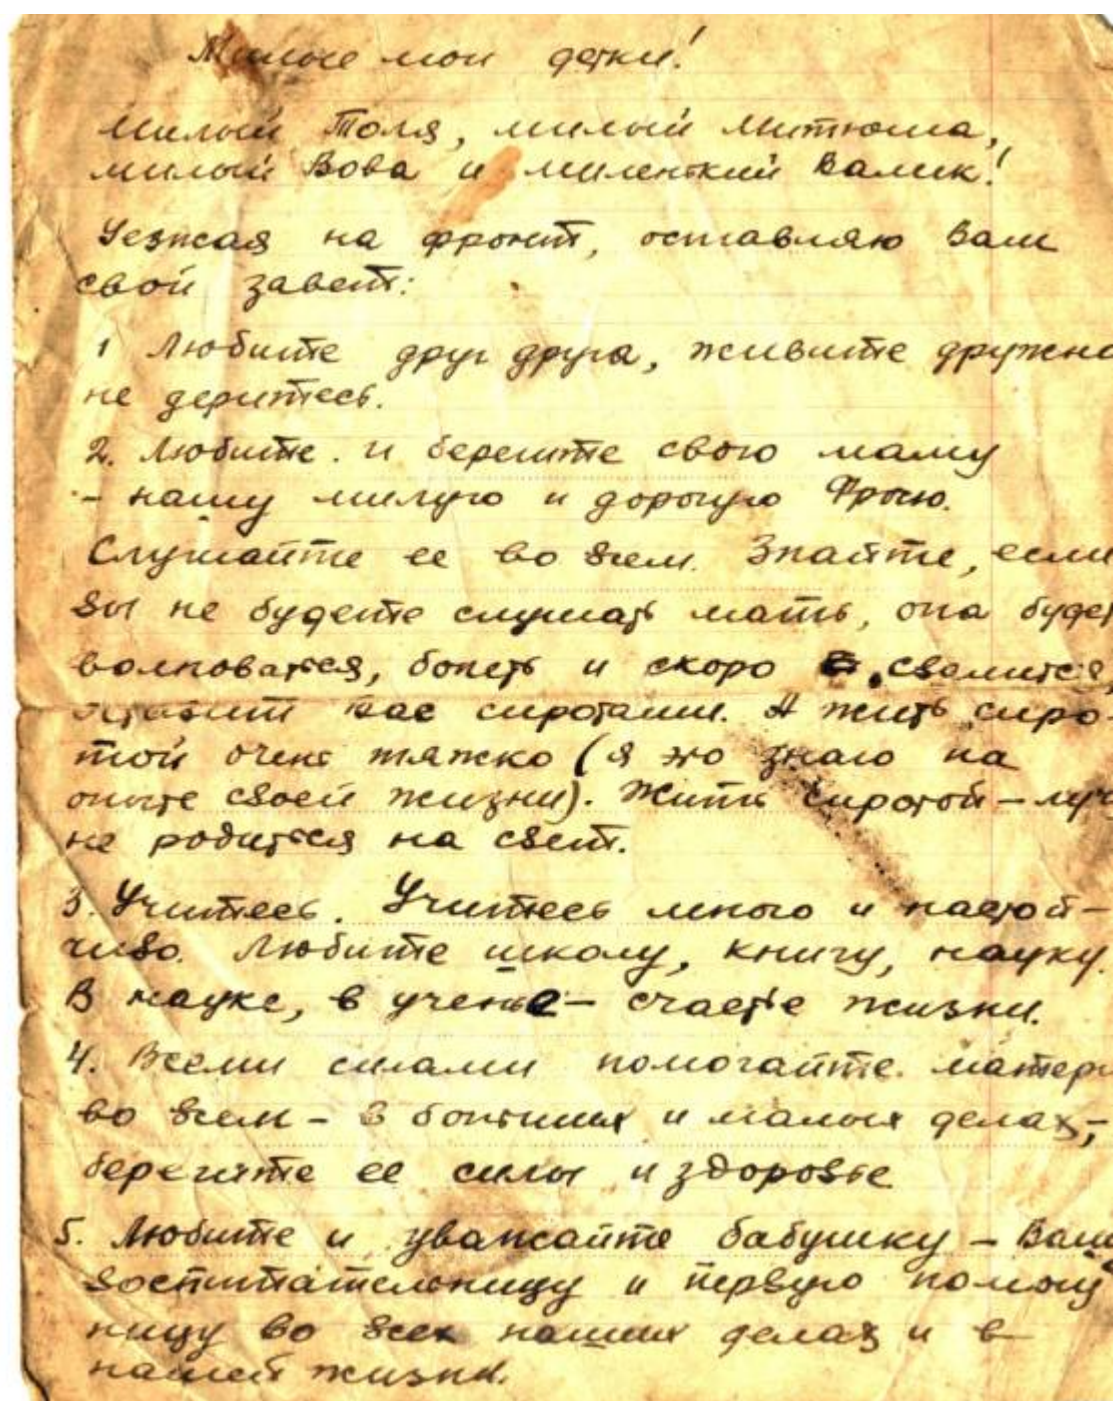 Милые мои детки!
Милый Толя, милый Митюша,
милый Вова и миленький Валик!
Уезжая на фронт, оставляю Вам
свой завет:
1 Любите друг друга, живите дружно
не деритесь.
2. Любите и берегите свою маму
- нашу милую и дорогую Фросю.
Слушайте ее во всем. Знайте, если
вы не будете слушать мать, она будет
волноваться, болеть и скоро свалится,
оставит вас сиротами. А жить сиро-
той очень тяжко (я это знаю на
опыте своей жизни). Жить сиротой – луч
не родиться на свет.
3. Учитесь. Учитесь много и настой-
чиво. Любите школу, книгу, науку.
В науке, в ученье – счастье жизни.
4. Всеми силами помогайте матери
во всем – в больших и малых делах, –
берегите ее силы и здоровье
5. Любите и уважайте бабушку – Вашу
воспитательницу и первую помощ
ницу во всех наших делах и в
нашей жизни.